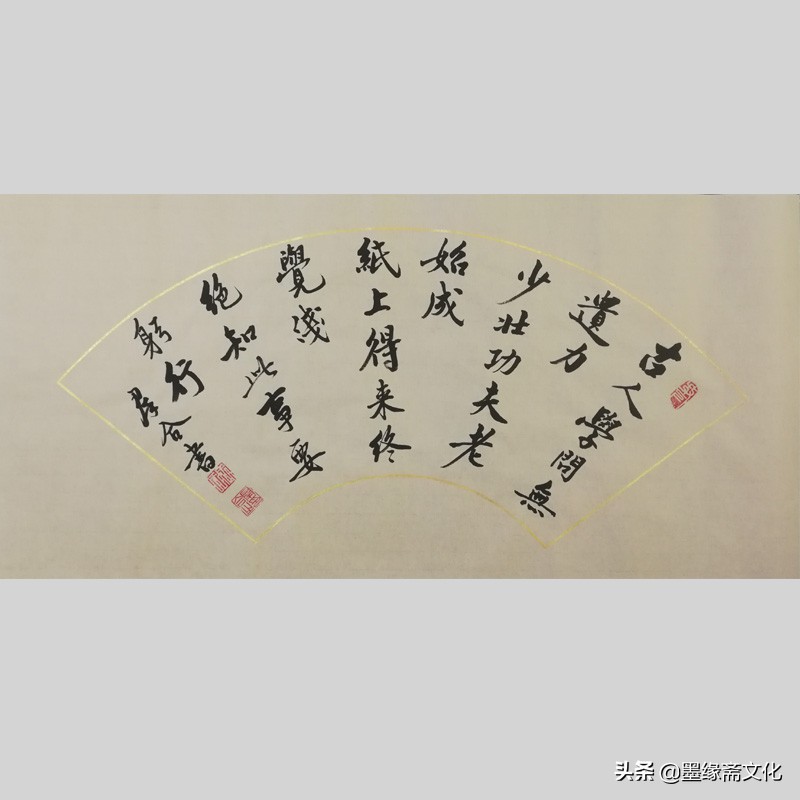 古人學問無
遺力
少壯功夫老
始成
紙上得来终
覺淺
绝知此事要
躬行
書
头条 @墨缘斋文化